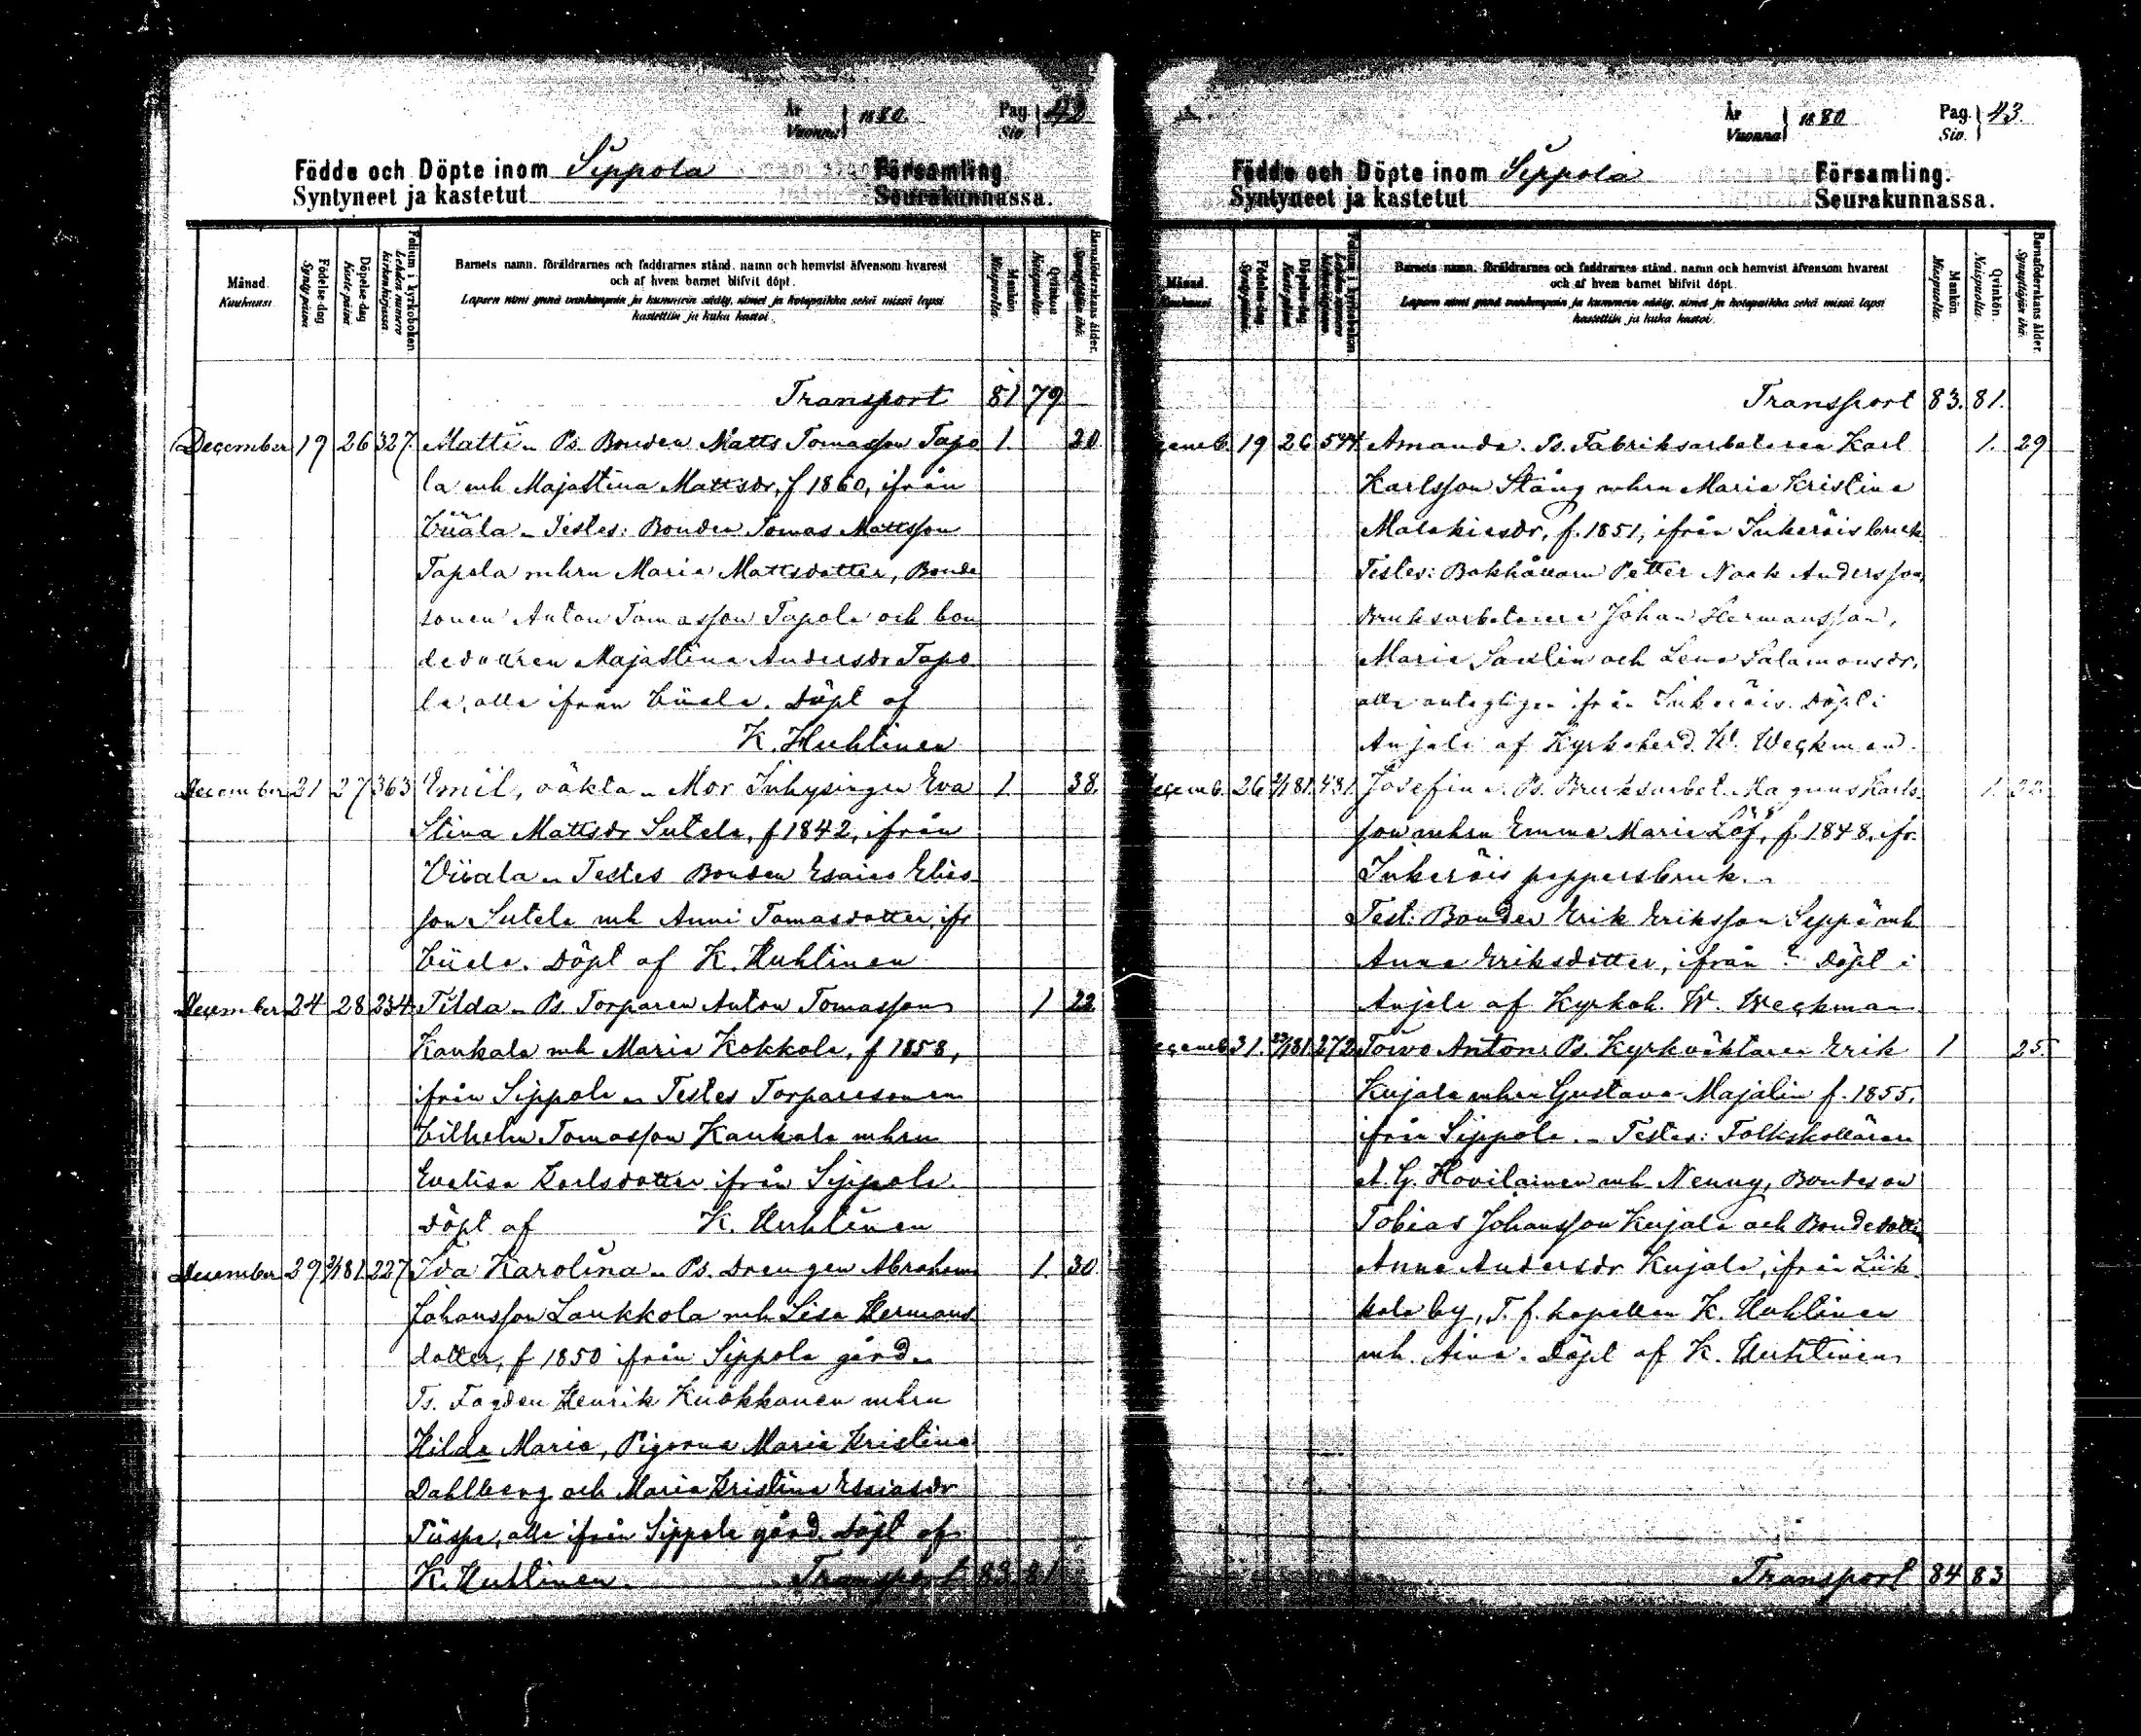 År
Vuonna 1880.
Pag.
Siv. 42
Födde och Döpte inom Sippola Församling.
Syntyneet ja kastetut Seurakunnassa.
Månad. Kuukausi.
Födelse-dag Syntypäivä
Döpelse-dag Kastepäivä
Folium i kyrkoboken Lehden numero kirkonkirjassa
Barnets namn, föräldrarnes och faddrarnes stånd, namn och hemvist äfvensom hvarest
och af hvem barnet blifvit döpt.
Lapsen nimi ynnä vanhempain ja kummein sääty, nimet ja kotopaikka sekä missä lapsi
kastettiin ja kuka kastoi.
Mankön Miespuolia.
Qvinkön Naispuolia.
Barnaföderskans ålder. Synnyttäjän ikä.
Transport 81 79
December 19 26 327 Matti. Ps. Bonden Matts Tomasson Tapo 1. 20.
la mh Majastina Mattsdr, f 1860, ifrån
Viiala. Testes: Bonden Tomas Mattsson
Tapola mhru Maria Mattsdotter, Bonde
sonen Anton Tomasson Tapola och bon
dedottren Majastina Andersdr Tapo
la, alla ifrån Viiala. Döpt af
K. Huhtinen
December 21 27 363 Emil, oäkta. Mor Inhysingen Eva 1. 38.
Stina Mattsdr Sutela, f 1842, ifrån
Viiala. Testes Bonden Esaias Elias
son Sutela mh Anni Tomasdotter, ifr
Viiala. Döpt af K. Huhtinen
December 24 28 234 Tilda. Ps. Torparen Anton Tomasson 1 22.
Kaukala mh Maria Kokkola, f 1858,
ifrån Sippola. Testes Torparesonen
Vilhelm Tomasson Kaukala mhru
Evalisa Karlsdotter ifrån Sippola.
Döpt af K. Huhtinen
December 29 2/1 81 227 Ida Karolina. Ps. Drengen Abraham 1. 30.
Johansson Laukkola mh Lisa Hermans
dotter, f 1850 ifrån Sippola gård.
Ts. Fogden Henrik Kuokkanen mhru
Hilda Maria, Pigorna Maria Kristina
Dahlberg och Maria Kristina Esaiasdr
alla ifrån Sippola gård. Döpt af
K. Huhtinen. Transport 83. 81.
År
Vuonna 1880
Pag.
Siv. 43.
Födde och Döpte inom Sippola Församling.
Syntyneet ja kastetut Seurakunnassa.
Månad. Kuukausi.
Födelse-dag Syntypäivä
Döpelse-dag Kastepäivä
Folium i kyrkoboken Lehden numero kirkonkirjassa
Barnets namn, föräldrarnes och faddrarnes stånd, namn och hemvist äfvensom hvarest
och af hvem barnet blifvit döpt.
Lapsen nimi ynnä vanhempain ja kummein sääty, nimet ja kotopaikka sekä missä lapsi
kastettiin ja kuka kastoi.
Mankön Miespuolia.
Qvinkön Naispuolia.
Barnaföderskans ålder. Synnyttäjän ikä.
Transport 83. 81.
cemb. 19 26 544 Amanda. Ps. Fabriksarbetaren Karl 1. 29
Karlsson Stång mhru Maria Kristina
Malakiasdr, f. 1851, ifrån Inkeröis bruk.
Testes: Bokhållarn Petter Noak Andersson,
Bruksarbetaren Johan Hermansson,
Maria och Lena Salamonsdr,
alla antagligen ifrån Inkeröis. Döpt i
Anjala af Kyrkoherd. W. Weckman.
ecemb. 26 2/1 81. 481. Josefina. Ps. Bruksarbet. Magnus Karls- 1. 32.
son mhru Emma Maria Löf, f. 1848. ifr.
Inkeröis pappersbruk.
Test: Bonden Erik Eriksson Seppä mh
Anna Eriksdotter, ifrån ? Döpt i
Anjala af Kyrkoh. W. Weckman
ecemb. 31. 81 272 Toivo Anton. Ps. Kyrkväktaren Erik 1 25.
Kujala mhru Gustava Majalin f. 1855.
ifrån Sippola. Testes: Folkskolläraren
A. G. Hovilainen mh Nenny, Bondeson
Tobias Johansson Kujala och Bondedottr
Anna Andersdr Kujala, ifrån Liik
kala by, T. f. kapellan K. Huhtinen
mh. Aina. Döpt af K. Huhtinen
Transport 84 83